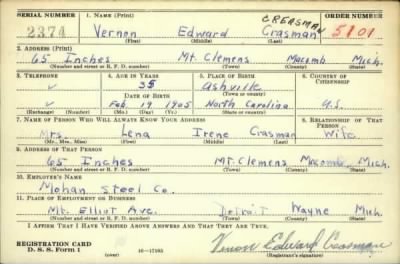 SERIAL NUMBER 1. NAME (Print) CREASMAN ORDER NUMBER
2374 Vernon Edward Crasman 5101
(First) (Middle) (Last)
2. ADDRESS (Print)
65 Inches Mt. Clemens Macomb Mich.
(Number and street or R. F. D. number) (Town) (County) (State)
3. TELEPHONE 4. AGE IN YEARS 5. PLACE OF BIRTH 6. COUNTRY OF CITIZENSHIP
v 35 Ashville
DATE OF BIRTH (Town or county)
v Feb. 19 1905 North Carolina U.S.
(Exchange) (Number) (Mo.) (Day) (Yr.) (State or country)
7. NAME OF PERSON WHO WILL ALWAYS KNOW YOUR ADDRESS 8. RELATIONSHIP OF THAT PERSON
Mrs. Lena Irene Crasman Wife
(Mr., Mrs., Miss) (First) (Middle) (Last)
9. ADDRESS OF THAT PERSON
65 Inches Mt. Clemens Macomb, Mich.
(Number and street or R. F. D. number) (Town) (County) (State)
10. EMPLOYER'S NAME
Mohan Steel Co.
11. PLACE OF EMPLOYMENT OR BUSINESS
Mt. Elliot Ave. Detroit Wayne Mich
(Number and street or R. F. D. number) (Town) (County) (State)
I AFFIRM THAT I HAVE VERIFIED ABOVE ANSWERS AND THAT THEY ARE TRUE.
REGISTRATION CARD
D. S. S. Form 1 (over) 16—17105 Vernon Edward Creasman
(Registrant's signature)